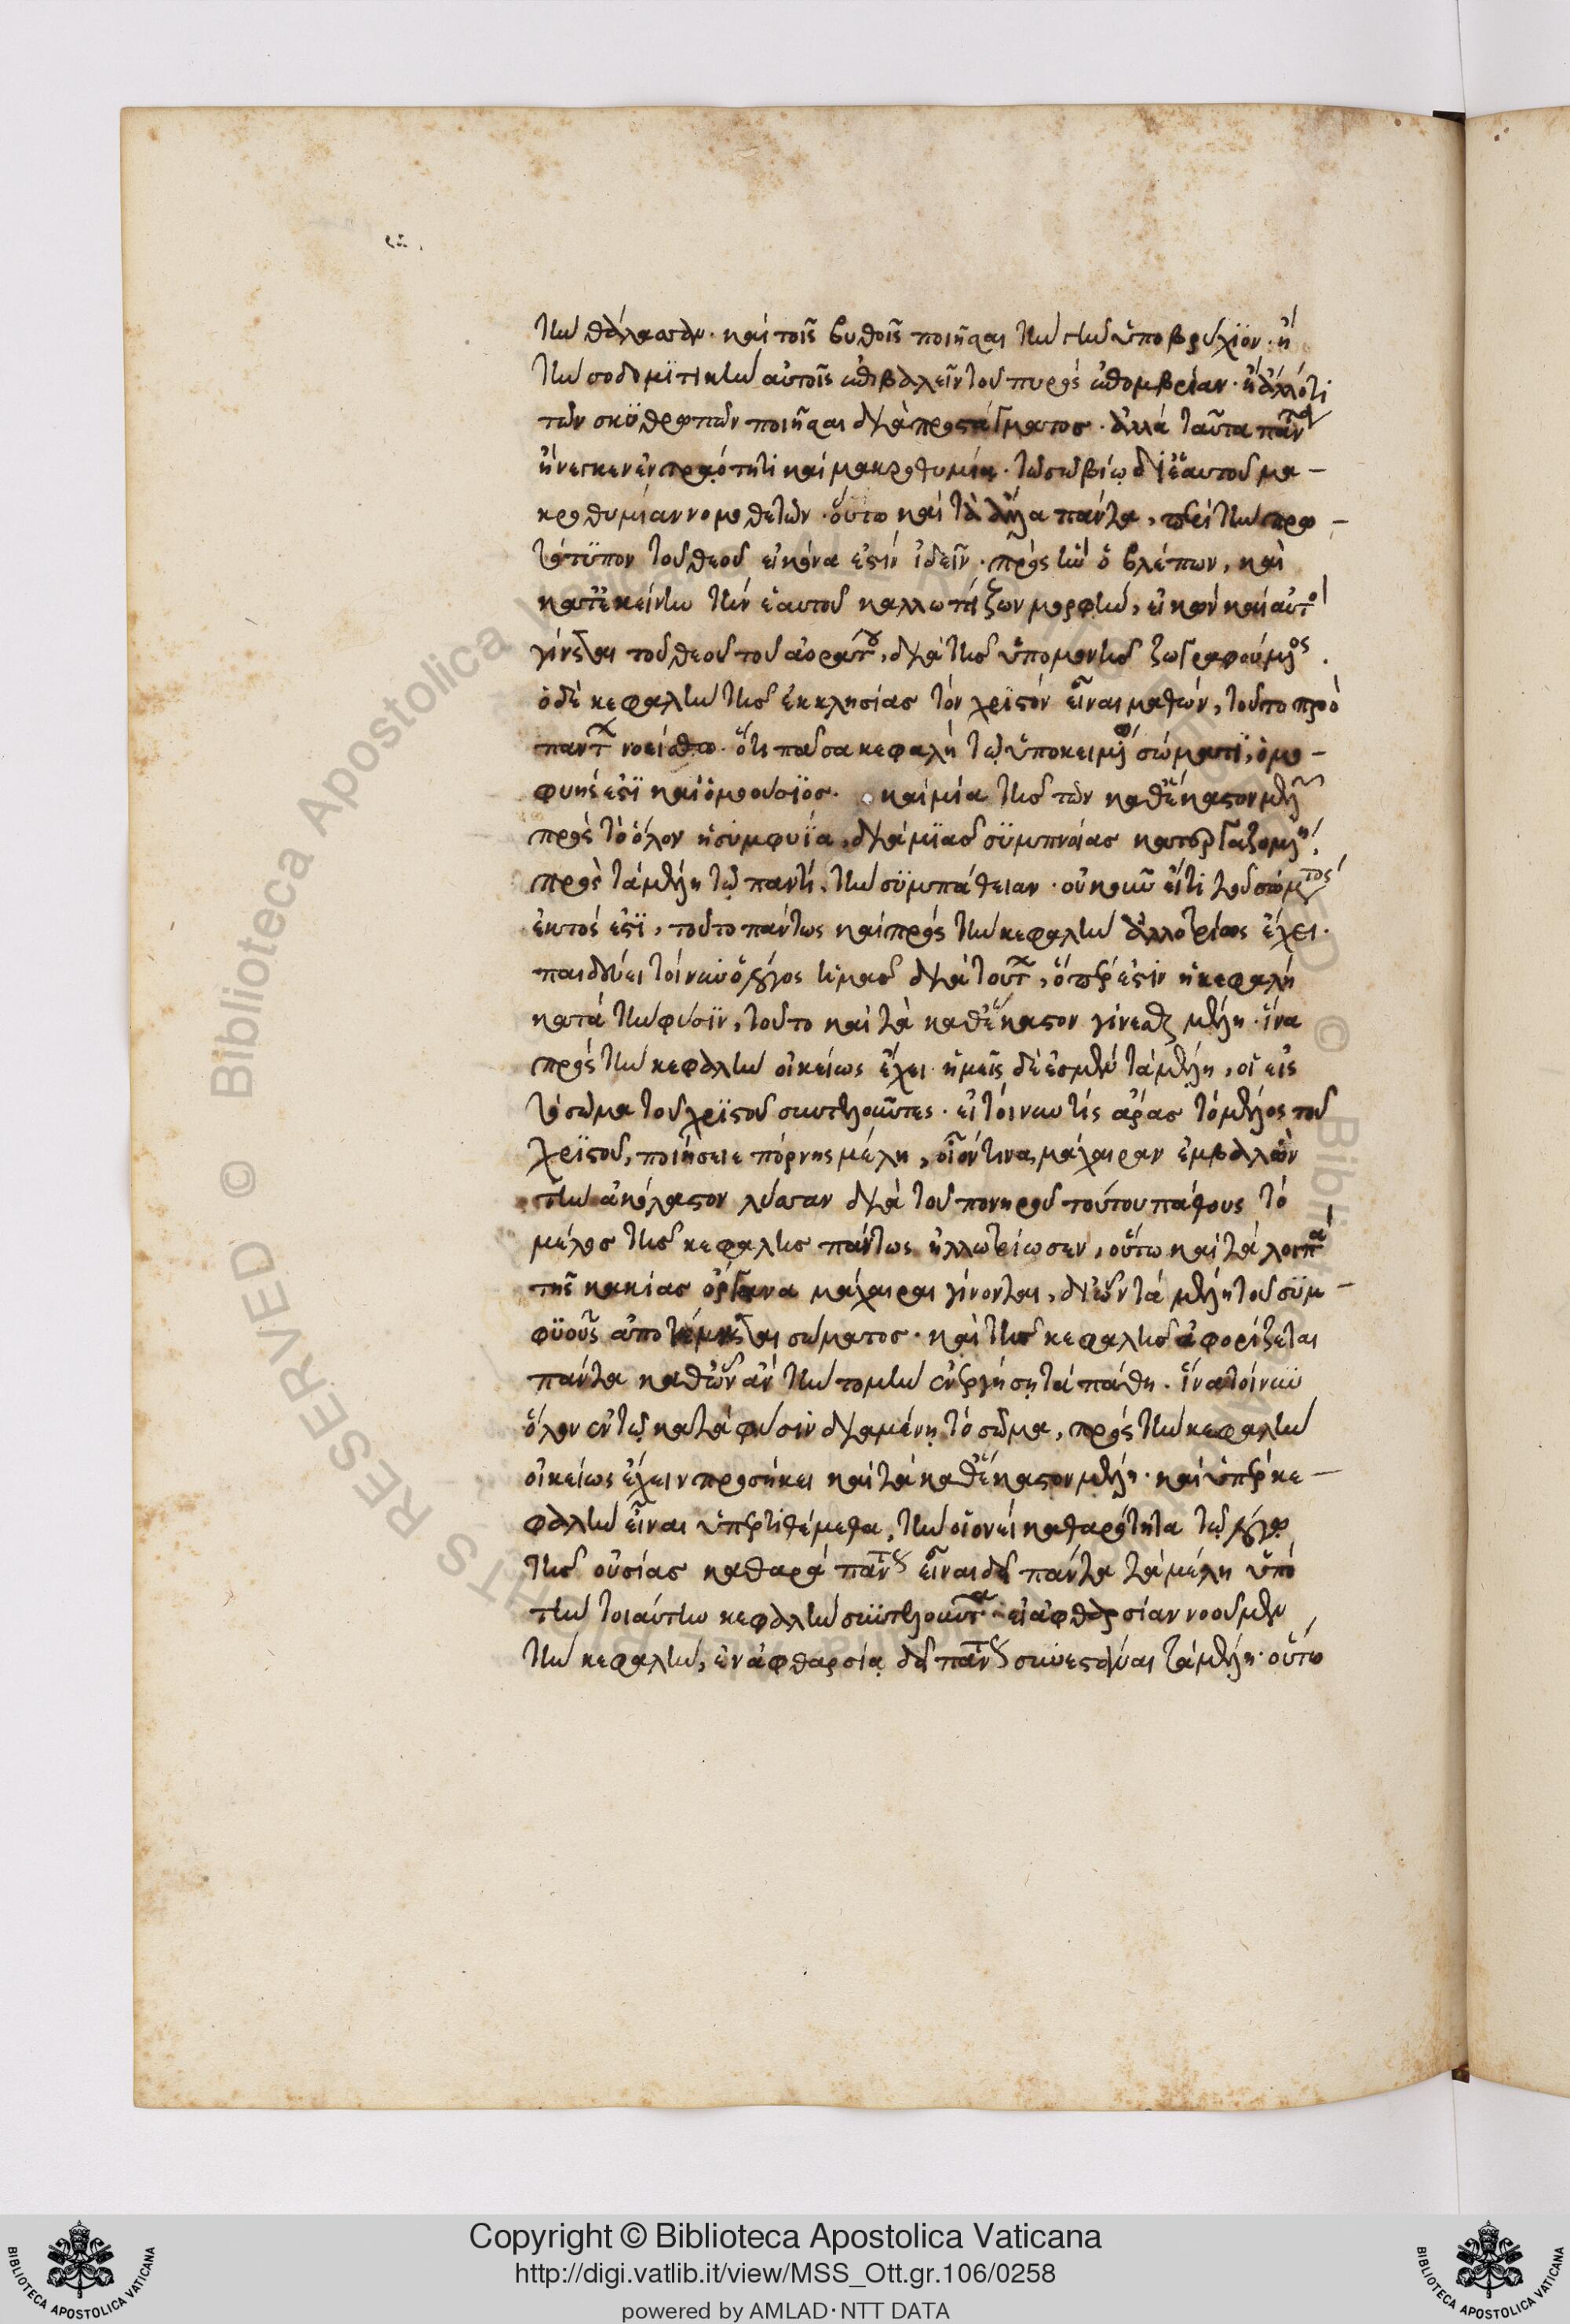 τὴν θάλασσαν· καὶ τοῖς βυθοῖς ποιῆσαι τὴν γῆν ὑποβρύχιον· ἢ
τὴν σοδομιτικὴν αὐτοῖς ἐπιβαλεῖν τοῦ πυρὸς ἐπομβρίαν· ἢ ἄλλό τι
τῶν σκυθρωπῶν ποιῆσαι διὰ προστάγματος· ἀλλὰ ταῦτα πάντα
ἤνεγκεν ἐν πραότητι καὶ μακροθυμίᾳ· τῷ σῷ βίῳ δι' ἑαυτοῦ μα-
κροθυμίαν νομοθετῶν· οὕτω καὶ τὰ ἄλλα πάντα, περὶ τὴν πρω-
τότυπον τοῦ θεοῦ εἰκόνα ἐστὶν ἰδεῖν· πρὸς ἣν ὁ βλέπων, καὶ
κατ' ἐκείνην τὴν ἑαυτοῦ καλλωπίζων μορφὴν, εἰκὼν καὶ αὐτὸς
γίνεται τοῦ θεοῦ τοῦ ἀοράτου, διὰ τῆς ὑπομονῆς ζωγραφούμενος.
ὁ δὲ κεφαλὴν τῆς ἐκκλησίας τὸν χριστὸν εἶναι μαθὼν, τοῦτο πρὸ
πάντων νοείσθω· ὅτι πᾶσα κεφαλὴ τῷ ὑποκειμένῳ σώματι, ὁμο-
φυής ἐστι καὶ ὁμοούσιος· καὶ μία τῆς τῶν καθ' ἕκαστον μελῶν
πρὸς τὸ ὅλον ἡ συμφυΐα, διὰ μιᾶς συμπνοίας κατεργαζομένη
πρὸς τὰ μέλη τῷ παντὶ, τὴν συμπάθειαν· οὐκοῦν εἴ τι τοῦ σώματος
ἐκτός ἐστι, τοῦτο πάντως καὶ πρὸς τὴν κεφαλὴν ἀλλοτρίως ἔχει·
παιδεύει τοίνυν ὁ λόγος ἡμᾶς διὰ τούτων, ὅπερ ἐστὶν ἡ κεφαλὴ
κατὰ τὴν φύσιν, τοῦτο καὶ τὰ καθ' ἕκαστον γίνεσθαι μέλη· ἵνα
πρὸς τὴν κεφαλὴν οἰκείως ἔχει· ἡμεῖς δέ ἐσμεν τὰ μέλη, οἱ εἰς
τὸ σῶμα τοῦ χριστοῦ συντελοῦντες· εἰ τοίνυν τίς ἄρας τὸ μέλος τοῦ
χριστοῦ, ποιήσειε πόρνης μέλη, οἷόν τινα μάχαιραν ἐμβαλὼν
τὴν ἀκόλαστον λύσσαν διὰ τοῦ πονηροῦ τούτου πάθους τὸ
μέλος τῆς κεφαλῆς πάντως ἠλλωτρίωσεν, οὕτω καὶ τὰ λοιπὰ
τῆς κακίας ὄργανα μάχαιραι γίνονται, δι' ὧν τὰ μέλη τοῦ συμ-
φυοῦς ἀποτέμνεται σώματος· καὶ τῆς κεφαλῆς ἀφορίζεται
πάντα καθ' ὧν ἂν τὴν τομὴν ἐνεργήσῃ τὰ πάθη· ἵνα τοίνυν
ὅλον ἐν τῷ κατὰ φύσιν διαμένῃ τὸ σῶμα, πρὸς τὴν κεφαλὴν
οἰκείως ἔχειν προσήκει καὶ τὰ καθ' ἕκαστον μέλη· καὶ ὑπὲρ κε-
φαλὴν εἶναι ὑπερτιθέμεθα, τὴν οἱονεὶ καθαρότητα τῷ λόγῳ
τῆς οὐσίας καθαρὰ πάντως εἶναι δεῖ πάντα τὰ μέλη ὑπὸ
τὴν τοιαύτην κεφαλὴν συντελοῦντα· εἰ ἀφθαρσίαν νοοῦμεν
τὴν κεφαλὴν, ἐν ἀφθαρσίᾳ δεῖ πάντως συνεστάναι τὰ μέλη· οὕτω
Copyright © Biblioteca Apostolica Vaticana
http://digi.vatlib.it/view/MSS_Ott.gr.106/0258
powered by AMLAD·NTT DATA